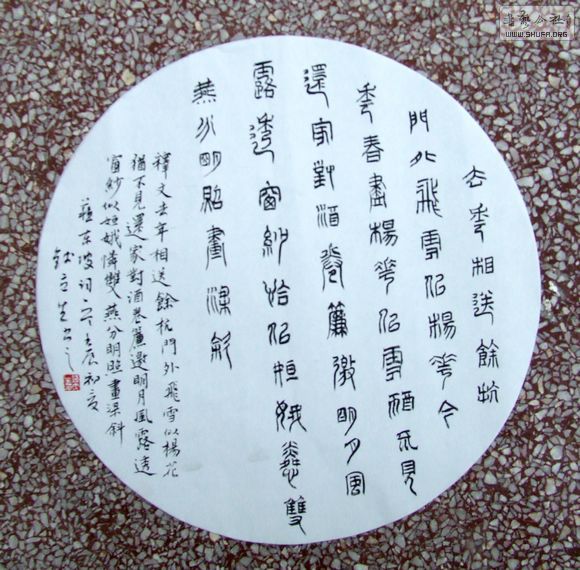 去年相送餘杭
門外飛雪似楊花今
年春盡楊花似雪猶不見
還家對酒卷簾邀明月風
露透窗紗恰似姮娥憐雙
燕分明照畫梁斜
釋文去年相送餘杭門外飛雪似楊花
猶不見還家對酒卷簾邀明月風露透
窗紗似姮娥憐雙燕分明照畫梁斜
蘇東坡詞 壬辰初夏
立生書
WWW.SHUFA.ORG